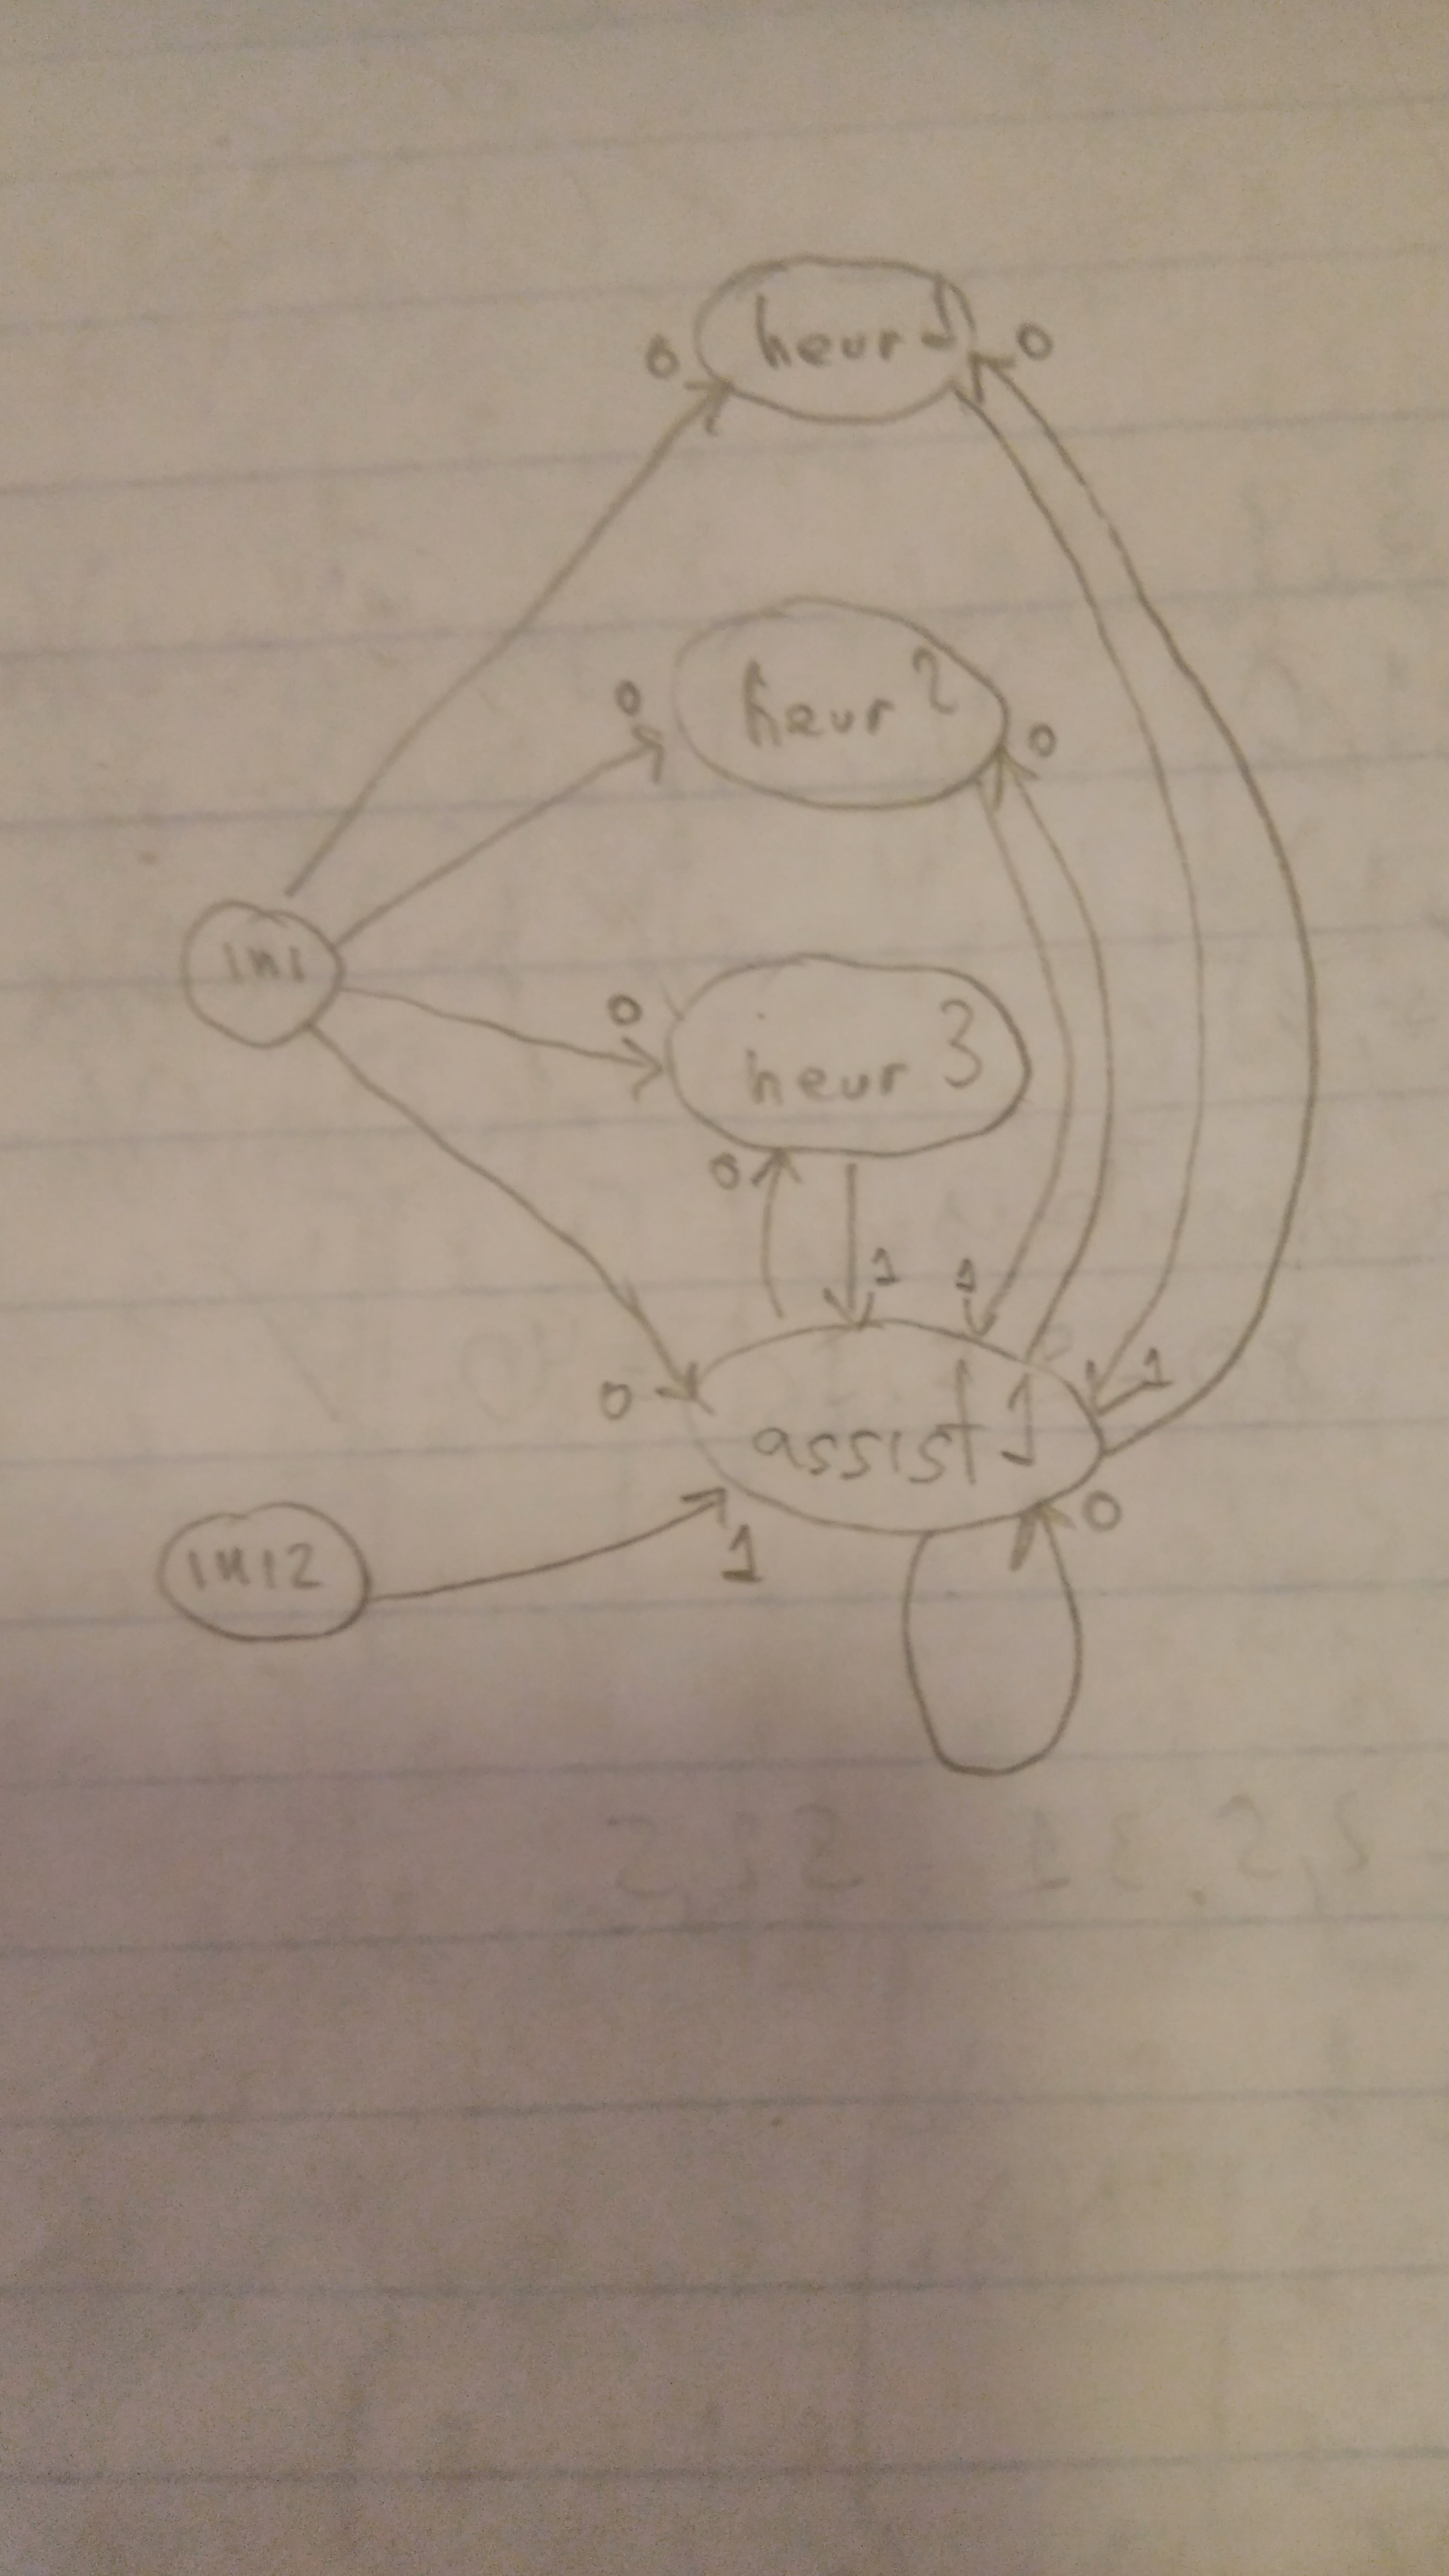 heur 1
0
0
heur 2
0
0
ini
heur 3
0
0
1
1
assist 1
0
1
ini2
1
0